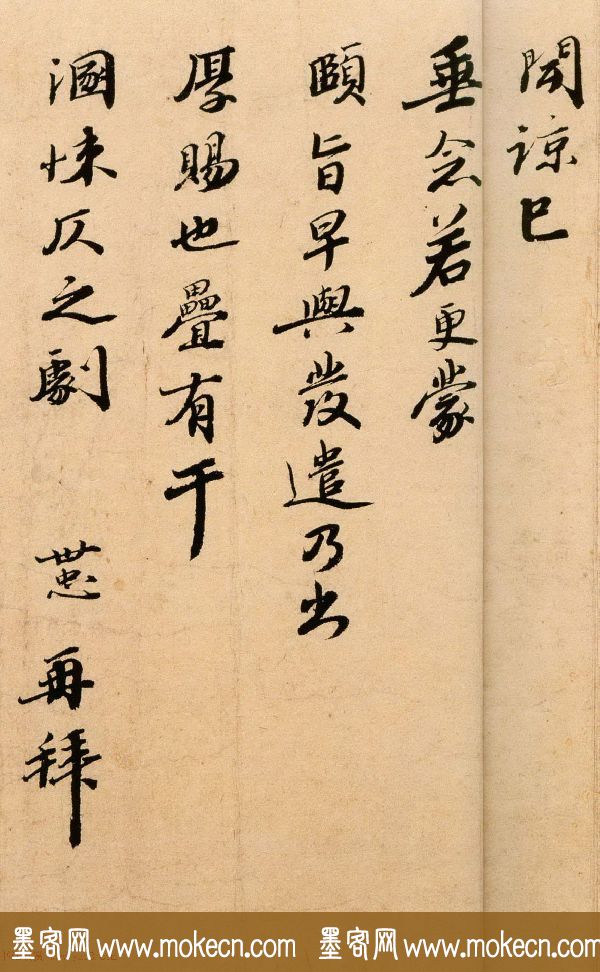 聞諒已
垂念若更蒙
頤旨早與發遣乃出
厚賜也疊有干
溷悚仄之劇 世忠再拜
墨客网 www.mokecn.com 墨客网 www.mokecn.com